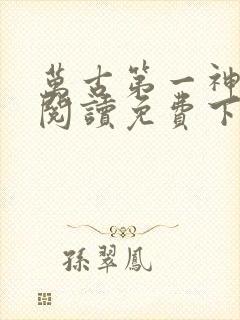 萬古第一神
閱讀免費下
孫翠鳳